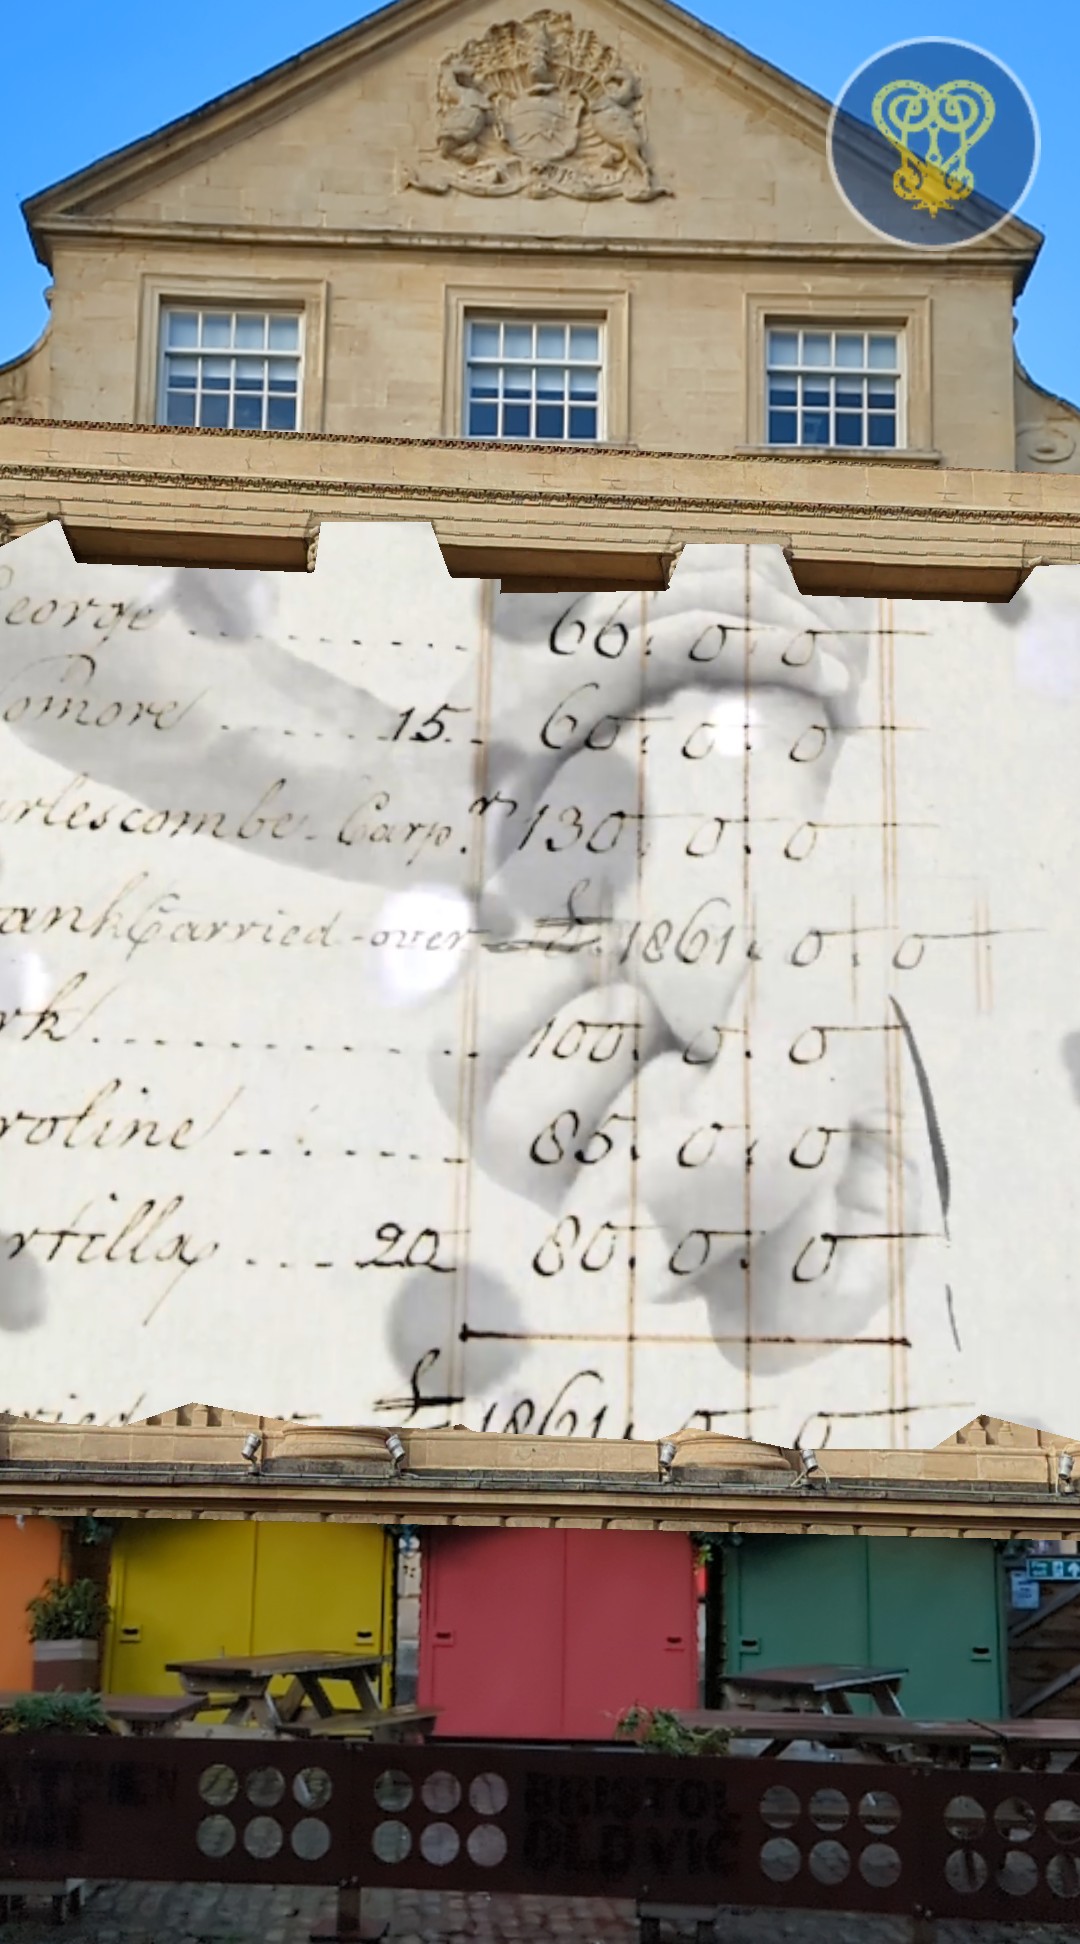 George ........ 66. 0. 0
Pomore ........ 15. 60. 0. 0
arlescombe - Carpr. 130. 0. 0
ank Carried over £ 1861. 0. 0
rk ........ 100. 0. 0
roline ........ 85. 0. 0
rtilla ... 20 80. 0. 0
£ 1861. 0. 0
BRISTOL
OLD VIC